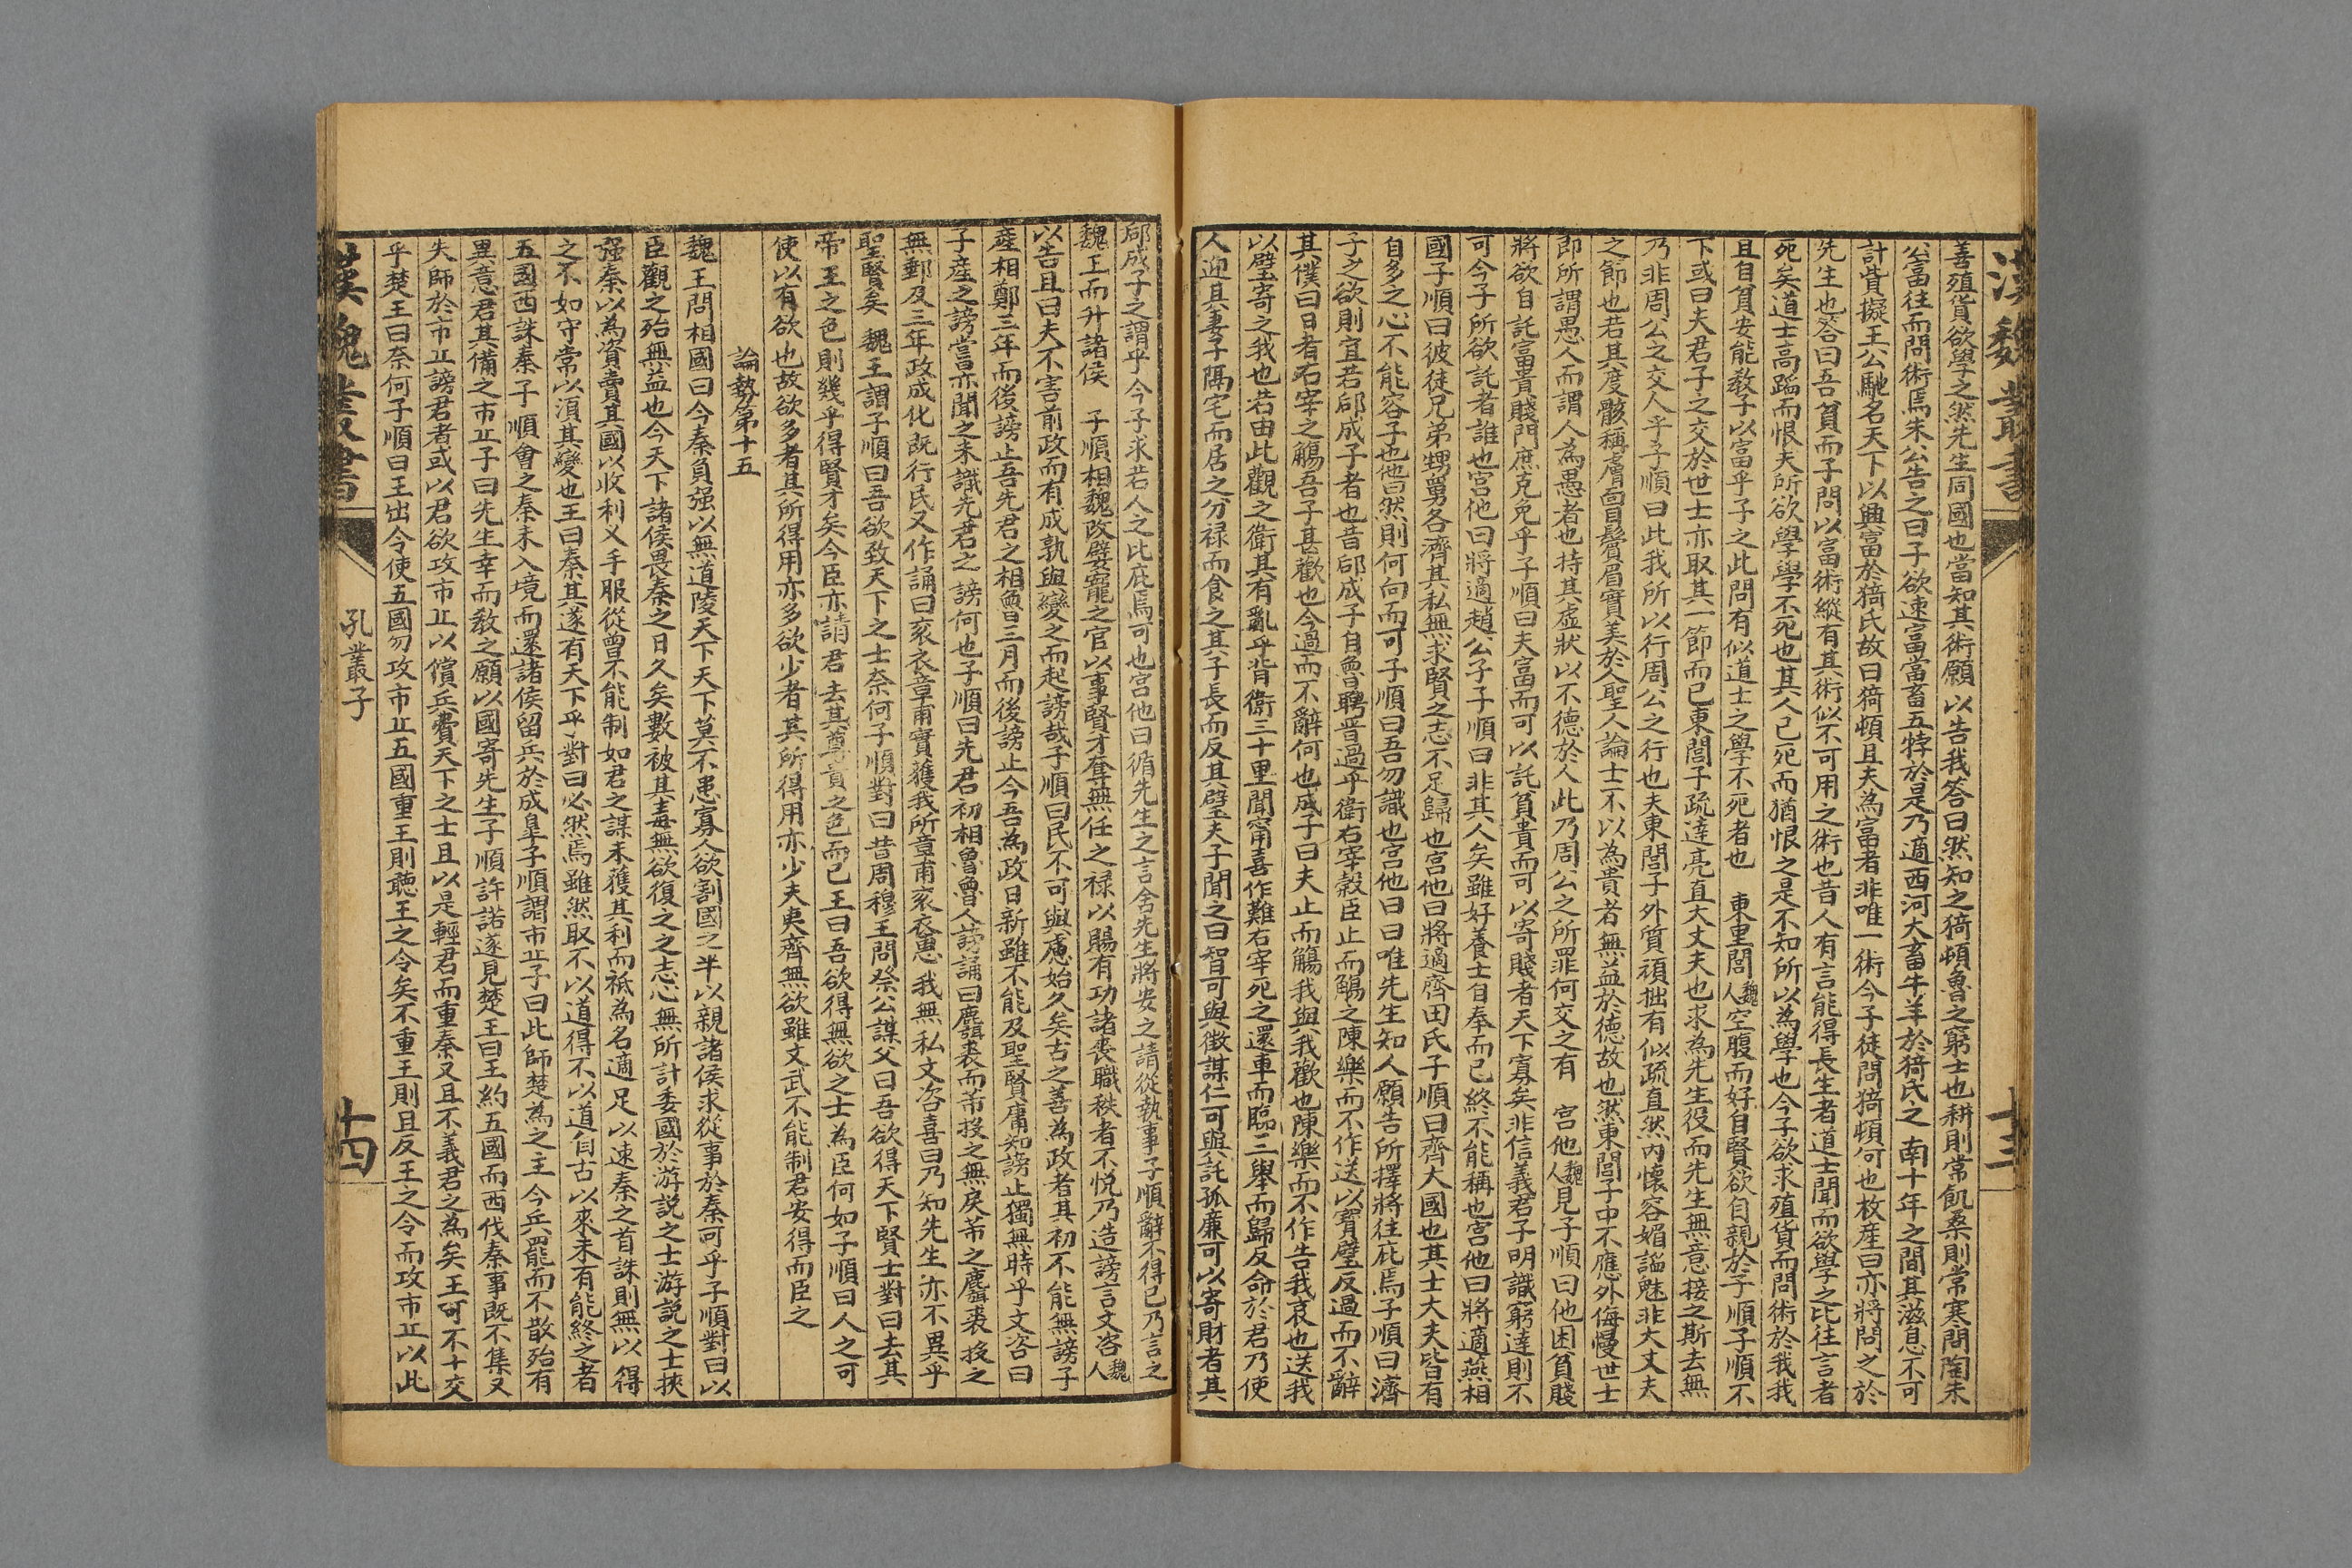 漢魏叢書
十三
善殖貨欲學之然先生同國也當知其術願以告我答曰然知之猗頓魯之窮士也耕則常飢桑則常寒聞陶朱
公富往而問術焉朱公告之曰子欲速富當畜五牸於是乃適西河大畜牛羊於猗氏之南十年之間其滋息不可
計貲擬王公馳名天下以興富於猗氏故曰猗頓且夫為富者非唯一術今子徒問猗頓何也枚產曰亦將問之於
先生也答曰吾貧而子問以富術縱有其術似不可用之術也昔人有言能得長生者道士聞而欲學之比往言者
死矣道士高蹈而恨夫所欲學學不死也其人已死而猶恨之是不知所以為學也今子欲求殖貨而問術於我我
且自貧安能教子以富乎子之此問有似道士之學不死者也 東里閭魏人空腹而好自賢欲自親於子順子順不
下或曰夫君子之交於世士亦取其一節而已東閭子疏達亮直大丈夫也求為先生役而先生無意接之斯去無
乃非周公之交人乎子順曰此我所以行周公之行也夫東閭子外質頑拙有似疏直然內懷容媚諂魅非大丈夫
之節也若其度骸稱膚面目鬢眉實美於人聖人論士不以為貴者無益於德故也然東閭子中不應外侮慢世士
即所謂愚人而謂人為愚者也持其虛狀以不德於人此乃周公之所罪何交之有 宮他魏人見子順曰他困貧賤
將欲自託富貴賤門庶克免乎子順曰夫富而可以託貧貴而可以寄賤者天下寡矣非信義君子明識窮達則不
可今子所欲託者誰也宮他曰將適趙公子子順曰非其人矣雖好養士自奉而已終不能稱也宮他曰將適燕相
國子順曰彼徒兄弟甥舅各濟其私無求賢之志不足歸也宮他曰將適齊田氏子順曰齊大國也其士大夫皆有
自多之心不能容子也他曰然則何向而可子順曰吾勿識也宮他曰曰唯先生知人願告所擇將往庇焉子順曰濟
子之欲則宜若郈成子者也昔郈成子自魯聘晉過乎衛右宰穀臣止而觴之陳樂而不作送以寶璧反過而不辭
其僕曰日者右宰之觴吾子甚歡也今過而不辭何也成子曰夫止而觴我與我歡也陳樂而不作告我哀也送我
以璧寄之我也若由此觀之衛其有亂乎背衛三十里聞甯喜作難右宰死之還車而臨三舉而歸反命於君乃使
人迎其妻子隔宅而居之分祿而食之其子長而反其璧夫子聞之曰智可與徵謀仁可與託孤廉可以寄財者其
郈成子之謂乎今子求若人之比庇焉可也宮他曰循先生之言舍先生將安之請從執事子順辭不得已乃言之
魏王而升諸侯 子順相魏改嬖寵之官以事賢才奪無任之祿以賜有功諸喪職秩者不悅乃造謗言文咨魏人
以告且曰夫不害前政而有成孰與變之而起謗哉子順曰民不可與慮始久矣古之善為政者其初不能無謗子
產相鄭三年而後謗止吾先君之相魯三月而後謗止今吾為政日新雖不能及聖賢庸知謗止獨無時乎文咨曰
子產之謗嘗亦聞之未識先君之謗何也子順曰先君初相魯魯人謗誦曰麛裘而芾投之無戾芾之麛裘投之
無郵及三年政成化既行民又作誦曰袞衣章甫實獲我所章甫袞衣惠我無私文咨喜曰乃知先生亦不異乎
聖賢矣 魏王謂子順曰吾欲致天下之士奈何子順對曰昔周穆王問祭公謀父曰吾欲得天下賢士對曰去其
帝王之色則幾乎得賢才矣今臣亦請君去其尊貴之色而已王曰吾欲得無欲之士為臣何如子順曰人之可
使以有欲也故欲多者其所得用亦多欲少者其所得用亦少夫夷齊無欲雖文武不能制君安得而臣之
論勢第十五
魏王問相國曰今秦負强以無道陵天下天下莫不患寡人欲割國之半以親諸侯求從事於秦可乎子順對曰以
臣觀之殆無益也今天下諸侯畏秦之日久矣數被其毒無欲復之之志心無所計委國於游説之士游説之士挾
强秦以為資賣其國以收利乂手服從曾不能制如君之謀未獲其利而祇為名適足以速秦之首誅則無以得
之不如守常以湏其變也王曰秦其遂有天下乎對曰必然焉雖然取不以道得不以道自古以來未有能終之者
五國西誅秦子順會之秦未入境而還諸侯留兵於成臯子順謂市丘子曰此師楚為之主今兵罷而不散殆有
異意君其備之市丘子曰先生幸而教之願以國寄先生子順許諾遂見楚王曰王約五國而西伐秦事既不集又
失師於市丘謗君者或以君欲攻市丘以償兵費天下之士且以是輕君而重秦又且不義君之為矣王可不卜交
乎楚王曰奈何子順曰王出令使五國勿攻市丘五國重王則聽王之令矣不重王則且反王之令而攻市丘以此
漢魏叢書
孔叢子
十四